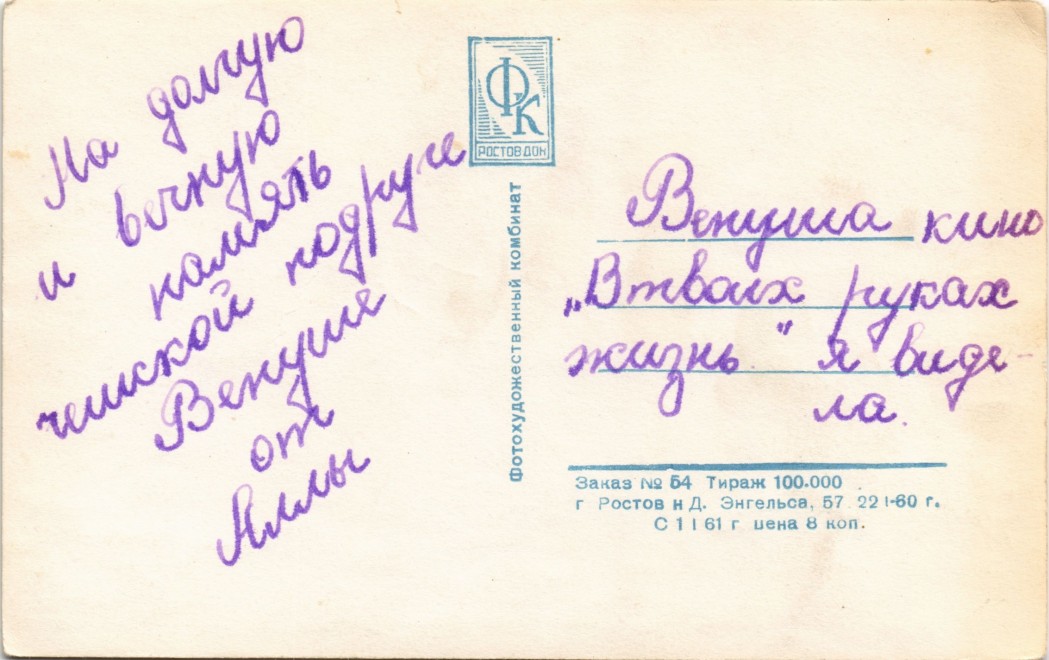 На долгую
и вечную
память
чешской подруге
Венуше
от
Аллы
ФК
РОСТОВ ДОН
Фотохудожественный комбинат
Венуша кино
„В твоих руках
жизнь" я виде-
ла.
Заказ № 54 Тираж 100.000
г Ростов н Д. Энгельса, 57 22 I-60 г.
С 1 I 61 г цена 8 коп.